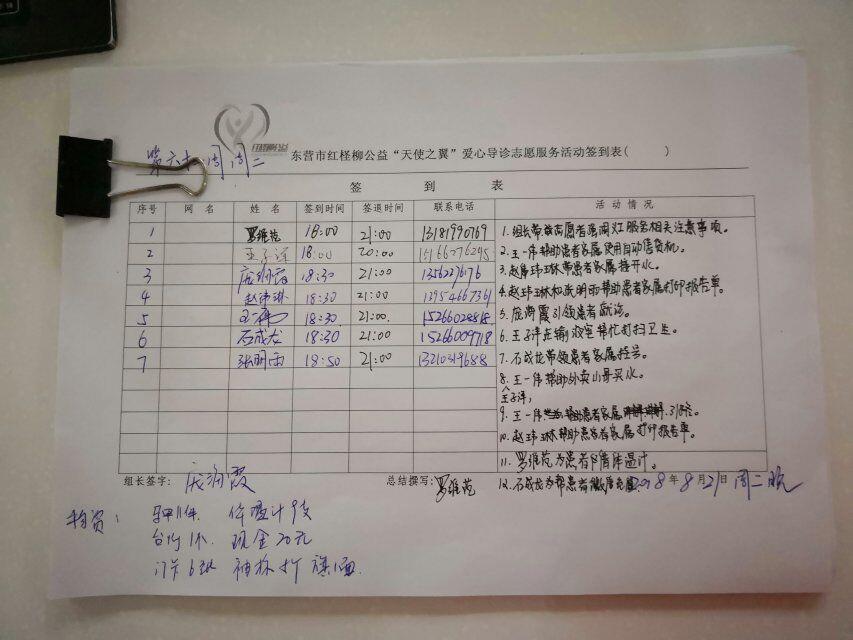 第六十 周 周二
东营市红柽柳公益“天使之翼”爱心导诊志愿服务活动签到表( )
签 到 表
序号 网 名 姓 名 签到时间 签退时间 联系电话 活动情况
1 罗维苑 18:00 21:00 13181990769
2 王子洋 18:00 20:00
3 庞润霞 18:30 21:00
4 赵玮琳 18:30 21:00 13954667361
5 王一伟 18:30 21:00 15266028818
6 石成龙 18:30 21:00 15266009718
7 张明雨 18:50 21:00 13210319688
1. 组长带领志愿者 服务相关注意事项。
2. 王一伟帮助患者家属使用自动售货机。
3. 赵玮琳带患者家属接开水。
4. 赵玮琳和张明雨帮助患者家属打印报告单。
5. 庞润霞引领患者就诊。
6. 王子洋在输液室帮忙打扫卫生。
7. 石成龙带领患者家属挂号。
8. 王一伟帮助外卖小哥买水。
王子洋,
9. 王一伟 帮助患者家属
10. 赵玮琳帮助患者家属打印报告单。
11. 罗维苑为患者 体温计。
12. 石成龙为帮患者
组长签字: 庞润霞 总结撰写: 罗维苑 2018年8月21日 周二晚
物资: 马甲11件 体温计9支
台竹1个 现金20元
袖标 旗1面